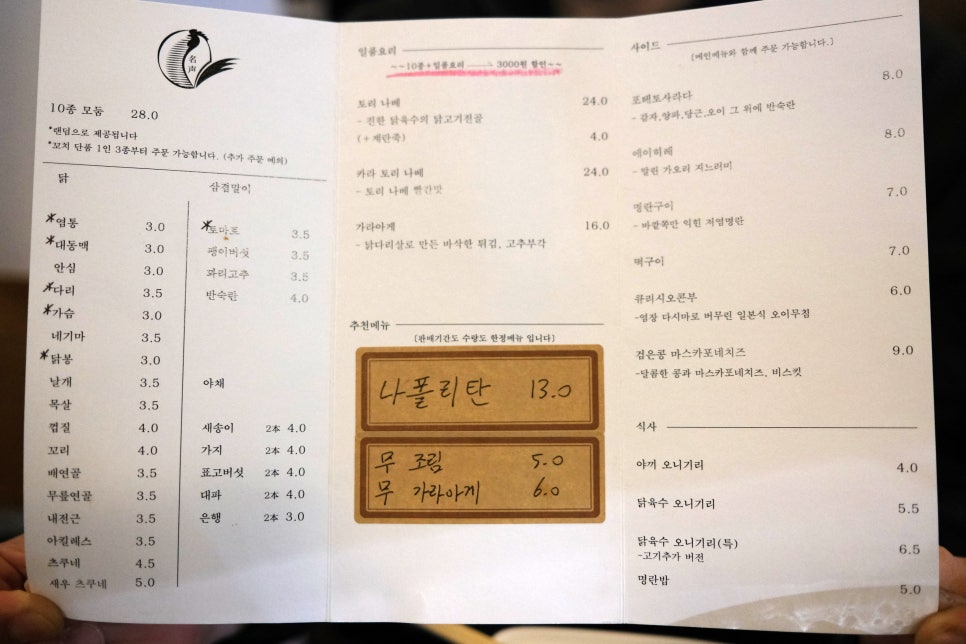 名声
10종 모둠 28.0
*랜덤으로 제공됩니다
*꼬치 단품 1인 3종부터 주문 가능합니다. (추가 주문 예외)
닭
*염통 3.0
*대동맥 3.0
안심 3.0
*다리 3.5
*가슴 3.0
네기마 3.5
*닭봉 3.0
날개 3.5
목살 3.5
껍질 4.0
꼬리 4.0
배연골 3.5
무릎연골 3.5
내전근 3.5
아킬레스 3.5
츠쿠네 4.5
새우 츠쿠네 5.0
삼겹말이
*토마토 3.5
팽이버섯 3.5
꽈리고추 3.5
반숙란 4.0
야채
새송이 2本 4.0
가지 2本 4.0
표고버섯 2本 4.0
대파 2本 4.0
은행 2本 3.0
일품요리
~~10종+일품요리 → 3000원 할인~~
토리 나베 24.0
- 진한 닭육수의 닭고기전골
(+계란죽) 4.0
카라 토리 나베 24.0
- 토리 나베 빨간맛
가라아게 16.0
- 닭다리살로 만든 바삭한 튀김, 고추부각
추천메뉴
[판매기간도 수량도 한정메뉴 입니다]
나폴리탄 13.0
무 조림 5.0
무 가라아게 6.0
사이드
[메인메뉴와 함께 주문 가능합니다.]
포테토사라다 8.0
- 감자,양파,당근,오이 그 위에 반숙란
에이히레 8.0
- 말린 가오리 지느러미
명란구이 7.0
- 바깥쪽만 익힌 저염명란
떡구이 7.0
큐리시오콘부 6.0
-염장 다시마로 버무린 일본식 오이무침
검은콩 마스카포네치즈 9.0
-달콤한 콩과 마스카포네치즈, 비스킷
식사
야끼 오니기리 4.0
닭육수 오니기리 5.5
닭육수 오니기리(특) 6.5
-고기추가 버전
명란밥 5.0